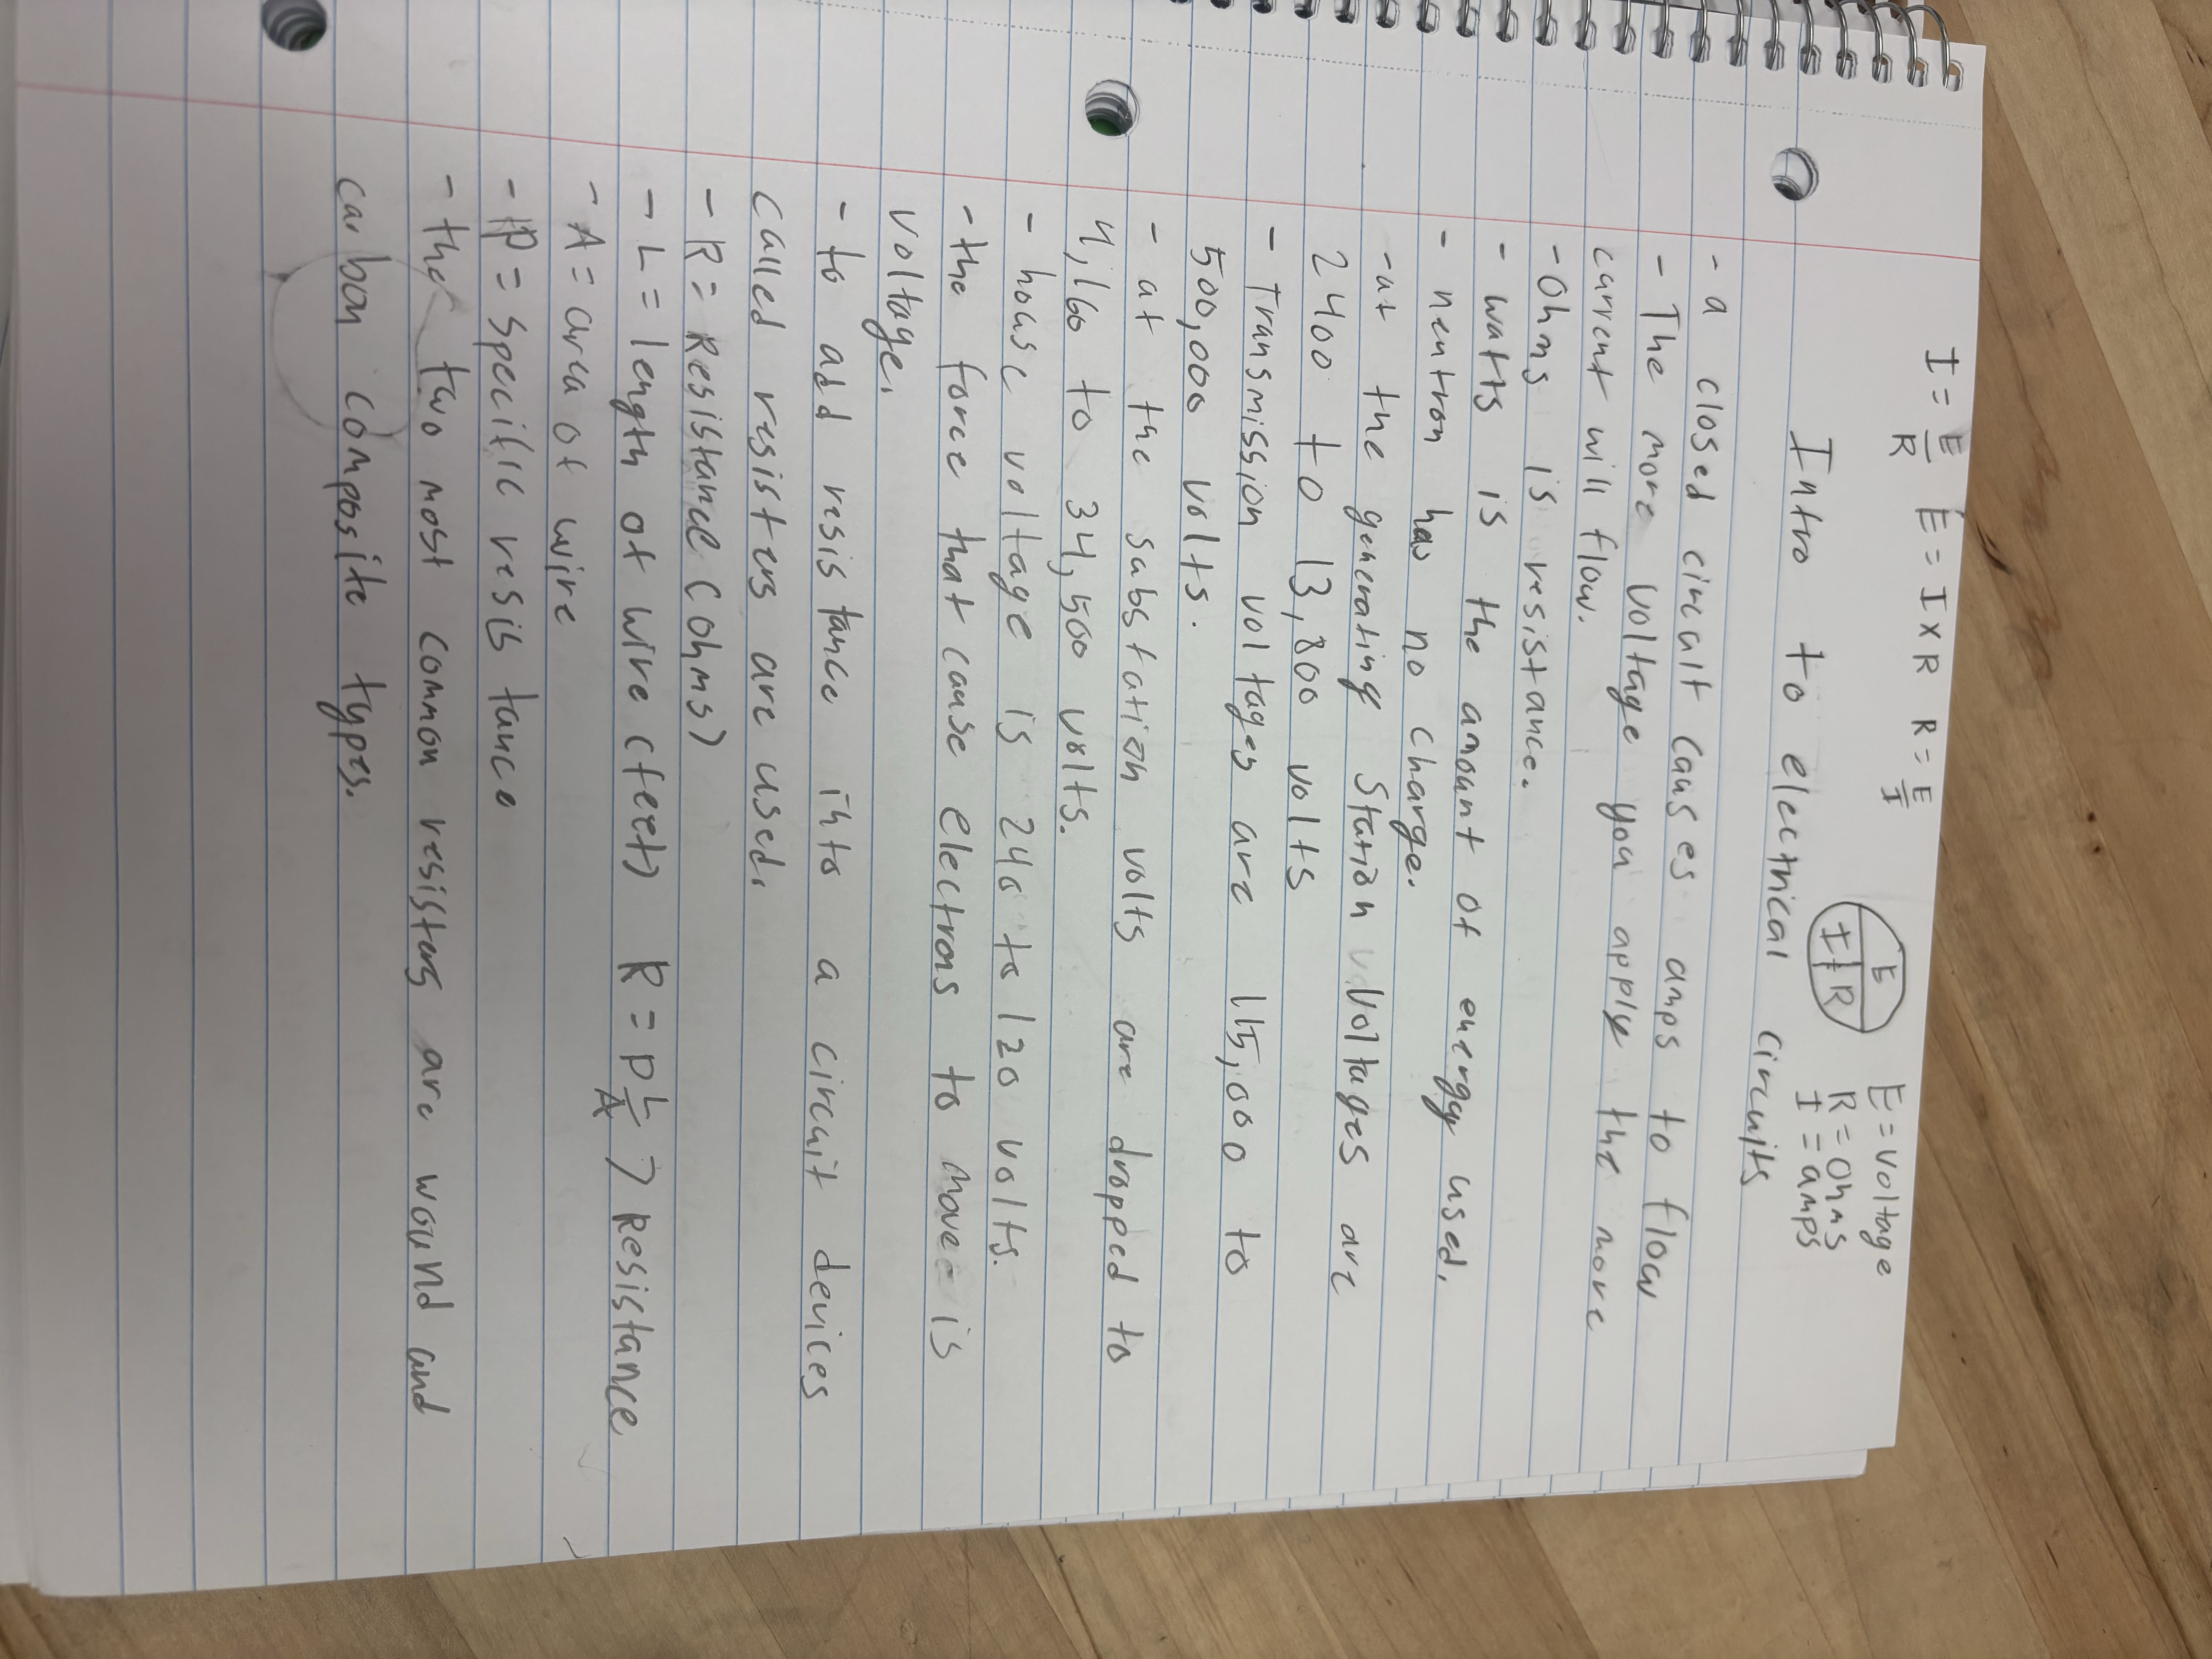 I = E/R E = I x R R = E/I
E
I R
E = voltage
R = Ohms
I = amps
Intro to electrical circuits
- a closed circuit causes amps to flow
- The more voltage you apply the more
current will flow.
- Ohms is resistance.
- watts is the amount of energy used.
- neutron has no charge.
- at the generating station voltages are
2400 to 13,800 volts
- Transmission voltages are 115,000 to
500,000 volts.
- at the substation volts are dropped to
4,160 to 34,500 volts.
- house voltage is 240 to 120 volts.
- the force that cause electrons to move is
voltage.
- to add resistance into a circuit devices
called resisters are used.
- R = Resistance (ohms)
- L = length of wire (feet) R = P L/A > Resistance
- A = area of wire
- P = Specific resistance
- the two most common resisters are wound and
carbon composite types.